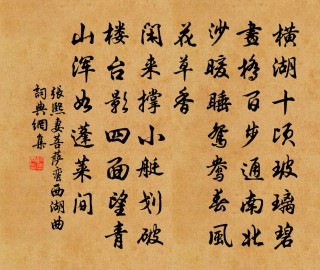 横湖十頃玻璃碧
畫橋百步通南北
沙暖睡鸳鸯春風
花草香
闲来撑小艇划破
楼台影四面望青
山浑如蓬莱间
张熙妻菩萨蛮西湖曲
詞典網集